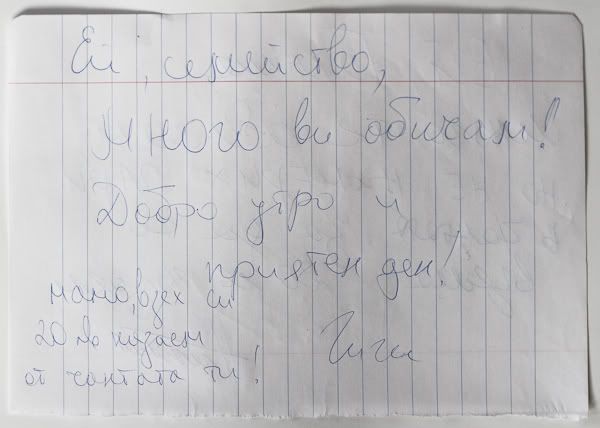 Ей, семейство,
много ви обичам!
Добро утро и
приятен ден!
мамо, взех си
20 лв назаем
от чантата ти!
Гиги